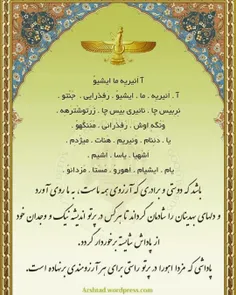 آ ائیریه ما ایشیو
آ . ائیریه . ما . ایشیو . رفذرایی . جنتو .
نربیس چا . نائیری بیس چا . زرتوشترهه .
ونگه اوش . رفذرائی . مننگهو .
یا . دئنام . وئیریم . هنات . میژدم .
اشهیا . یاسا . اشیم .
یام . ایشیام . اهورو . مستا . مزدائو .
باشد که دوستی و برادری که آرزوی همه ماست، به ما روی آورد
و دلهای بهدینان را شادمان گرداند تا هر کس در پرتو اندیشه نیک و وجدان خود
از پاداش شایسته برخوردار گردد.
پاداشی که مزدا اهورا در پرتو راستی برای هر آرزومندی برنهاده است.
Arshtad.wordpress.com